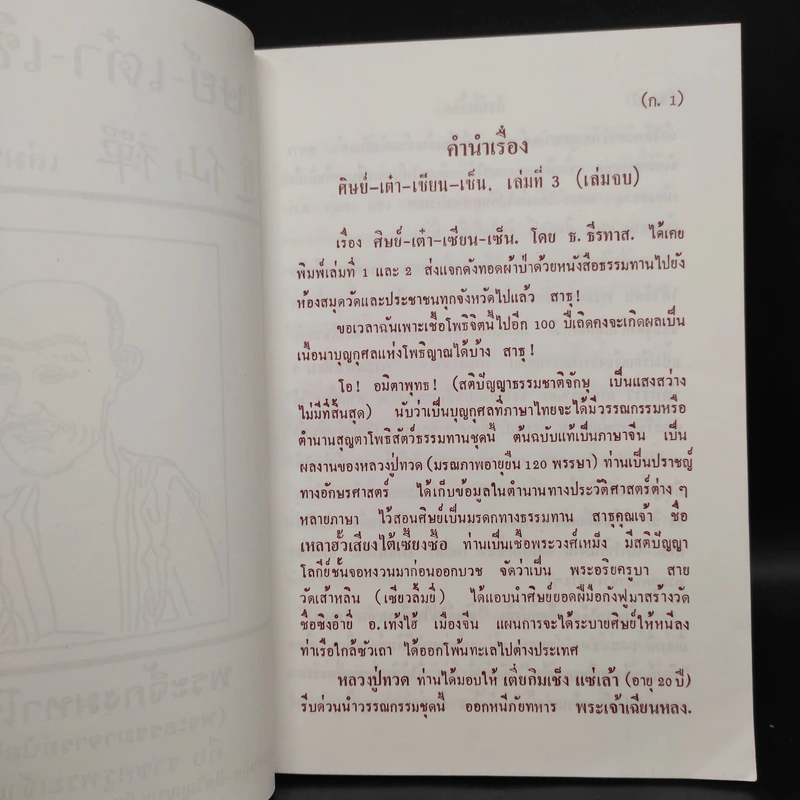 (ก. 1)
คำนำเรื่อง
ศิษย์-เต๋า-เซียน-เซ็น. เล่มที่ 3 (เล่มจบ)
เรื่อง ศิษย์-เต๋า-เซียน-เซ็น. โดย ธ. ธีรทาส. ได้เคย
พิมพ์เล่มที่ 1 และ 2 ส่งแจกดังทอดผ้าป่าด้วยหนังสือธรรมทานไปยัง
ห้องสมุดวัดและประชาชนทุกจังหวัดไปแล้ว สาธุ!
ขอเวลาฉันเพาะเชื้อโพธิจิตนี้ไปอีก 100 ปีเถิดคงจะเกิดผลเป็น
เนื้อนาบุญกุศลแห่งโพธิญาณได้บ้าง สาธุ!
โอ! อมิตาพุทธ! (สติปัญญาธรรมชาติจักษุ เป็นแสงสว่าง
ไม่มีที่สิ้นสุด) นับว่าเป็นบุญกุศลที่ภาษาไทยจะได้มีวรรณกรรมหรือ
ตำนานสุญตาโพธิสัตว์ธรรมทานชุดนี้ ต้นฉบับแท้เป็นภาษาจีน เป็น
ผลงานของหลวงปู่ทวด (มรณภาพอายุยืน 120 พรรษา) ท่านเป็นปราชญ์
ทางอักษรศาสตร์ ได้เก็บข้อมูลในตำนานทางประวัติศาสตร์ต่าง ๆ
หลายภาษา ไว้สอนศิษย์เป็นมรดกทางธรรมทาน สาธุคุณเจ้า ชื่อ
เหลาฮั้วเสียงไต้เซี้ยงซือ ท่านเป็นเชื้อพระวงศ์เหม็ง มีสติปัญญา
โลกีย์ชั้นจอหงวนมาก่อนออกบวช จัดว่าเป็น พระอริยครูบา สาย
วัดเส้าหลิน (เซียวลิ้มยี่) ได้แอบนำศิษย์ยอดฝีมือกังฟูมาสร้างวัด
ชื่อซิงอำยี่ อ.เท้งไฮ้ เมืองจีน แผนการจะได้ระบายศิษย์ให้หนีลง
ท่าเรือใกล้ซัวเถา ได้ออกโพ้นทะเลไปต่างประเทศ
หลวงปู่ทวด ท่านได้มอบให้ เตี่ยกิมเช็ง แซ่เล้า (อายุ 20 ปี)
รีบด่วนนำวรรณกรรมชุดนี้ ออกหนีภัยทหาร พระเจ้าเฉียนหลง.